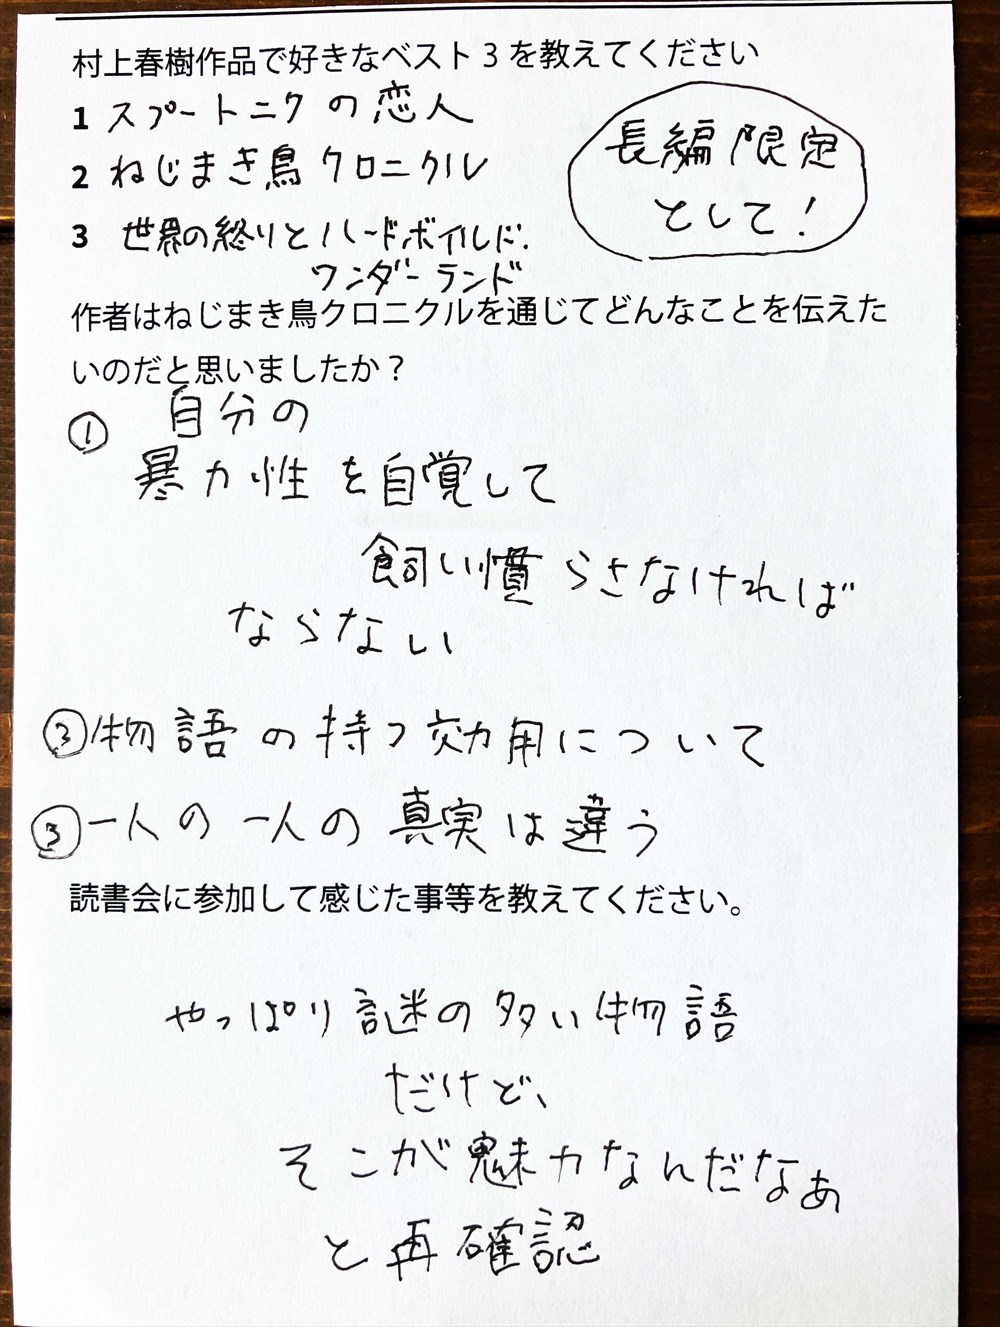 村上春樹作品で好きなベスト3を教えてください
1 スプートニクの恋人
長編限定
として!
2 ねじまき鳥クロニクル
3 世界の終りとハードボイルド.
ワンダーランド
作者はねじまき鳥クロニクルを通じてどんなことを伝えた
いのだと思いましたか?
① 自分の
暴力性を自覚して
飼い慣らさなければ
ならない
②物語の持つ効用について
③一人の一人の真実は違う
読書会に参加して感じた事等を教えてください。
やっぱり謎の多い物語
だけど、
そこが魅力なんだなぁ
と再確認